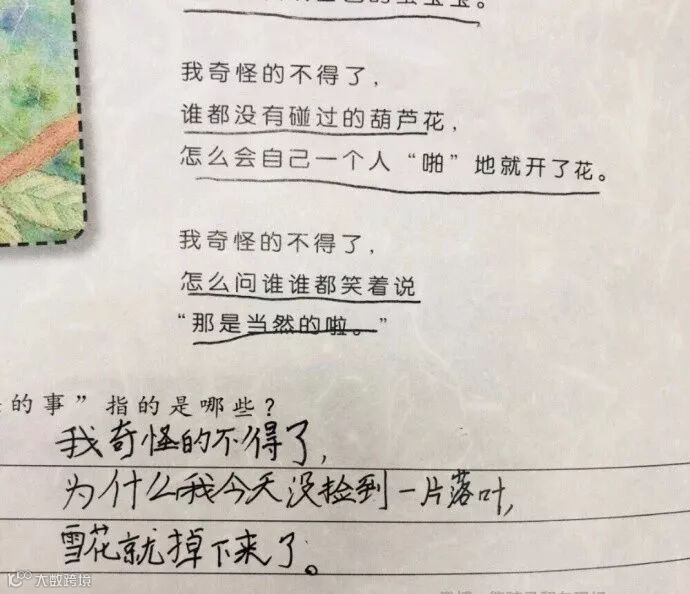 我奇怪的不得了，
谁都没有碰过的葫芦花，
怎么会自己一个人“啪”地就开了花。
我奇怪的不得了，
怎么问谁谁都笑着说
“那是当然的啦。”
的事”指的是哪些？
我奇怪的不得了，
为什么我今天没捡到一片落叶，
雪花就掉下来了。
大数跨境